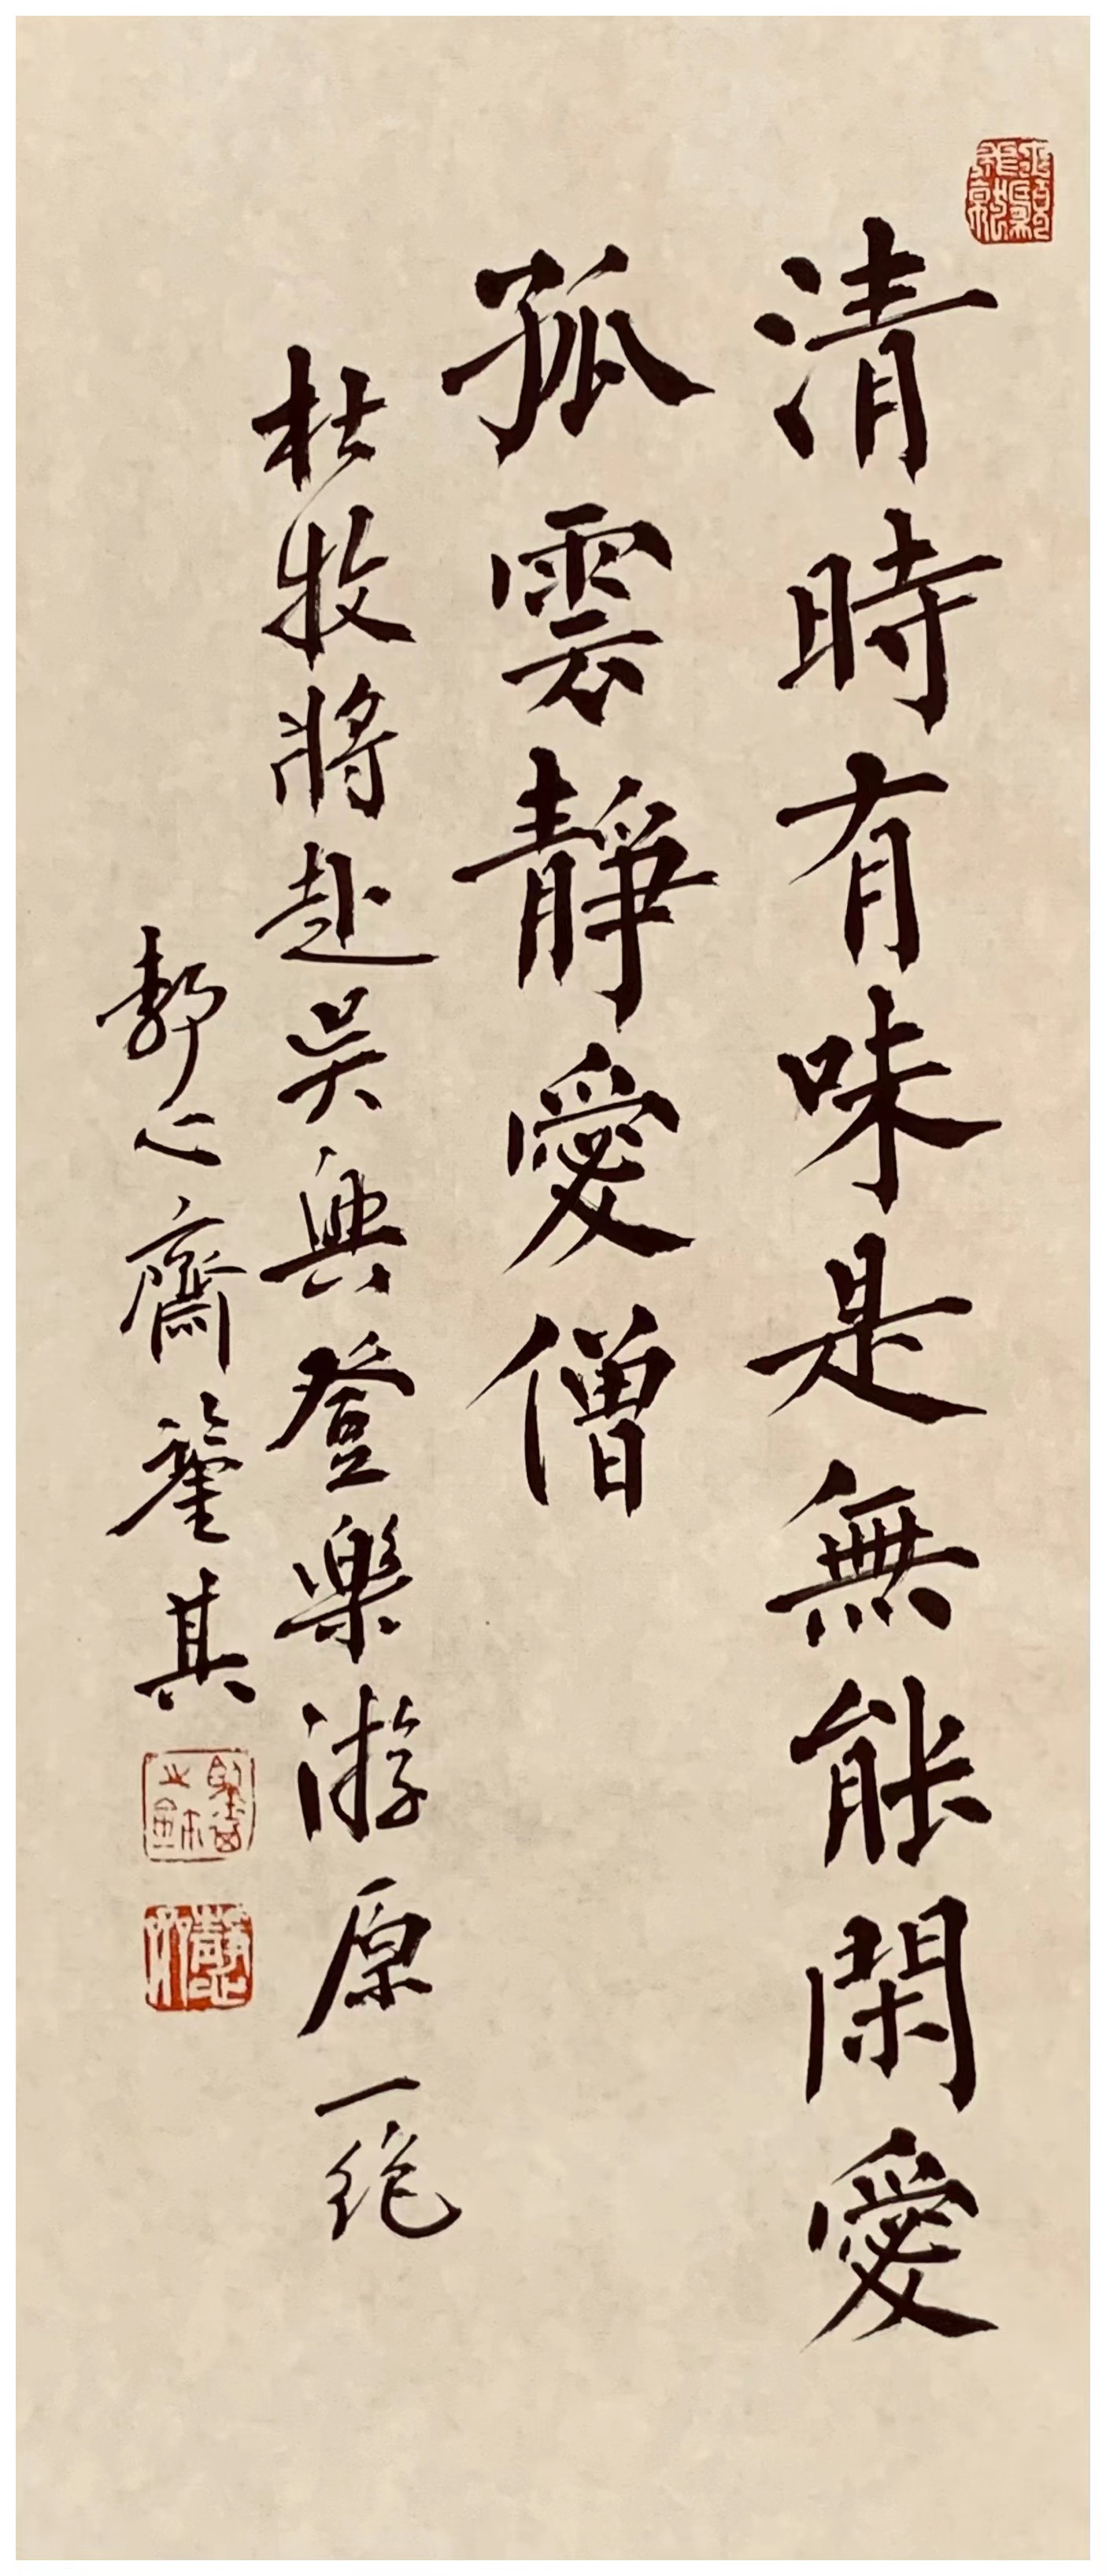 清時有味是無能閑愛
孤雲靜愛僧
杜牧將赴吳興登樂游原一絕
靜心齋 其